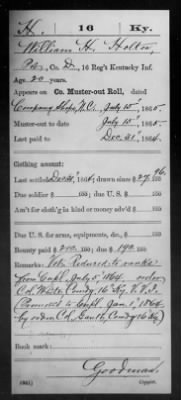 H. 16 Ky.
William H. Holton
Pvt., Co. D, 16 Reg't Kentucky Inf.
Age 20 years.
Appears on Co. Muster-out Roll, dated
Company Shops, N.C., July 15, 1865.
Muster-out to date July 15, 1865.
Last paid to Dec. 31, 1864.
Clothing account:
Last settled Dec 31, 1864; drawn since $27.96
Due soldier $ 100; due U. S. $ 100
Am't for cloth'g in kind or money adv'd $ 100
Due U. S. for arms, equipments, &c., $ 100
Bounty paid $ 100; due $ 100
Remarks: Vet. Reduced to ranks
from Corpl. July 5, 1864. order
16 Ky. V. I.
Promoted to Corpl. Jan 1, 1864
by order
Book mark:
Goodman
(861) Copyist.